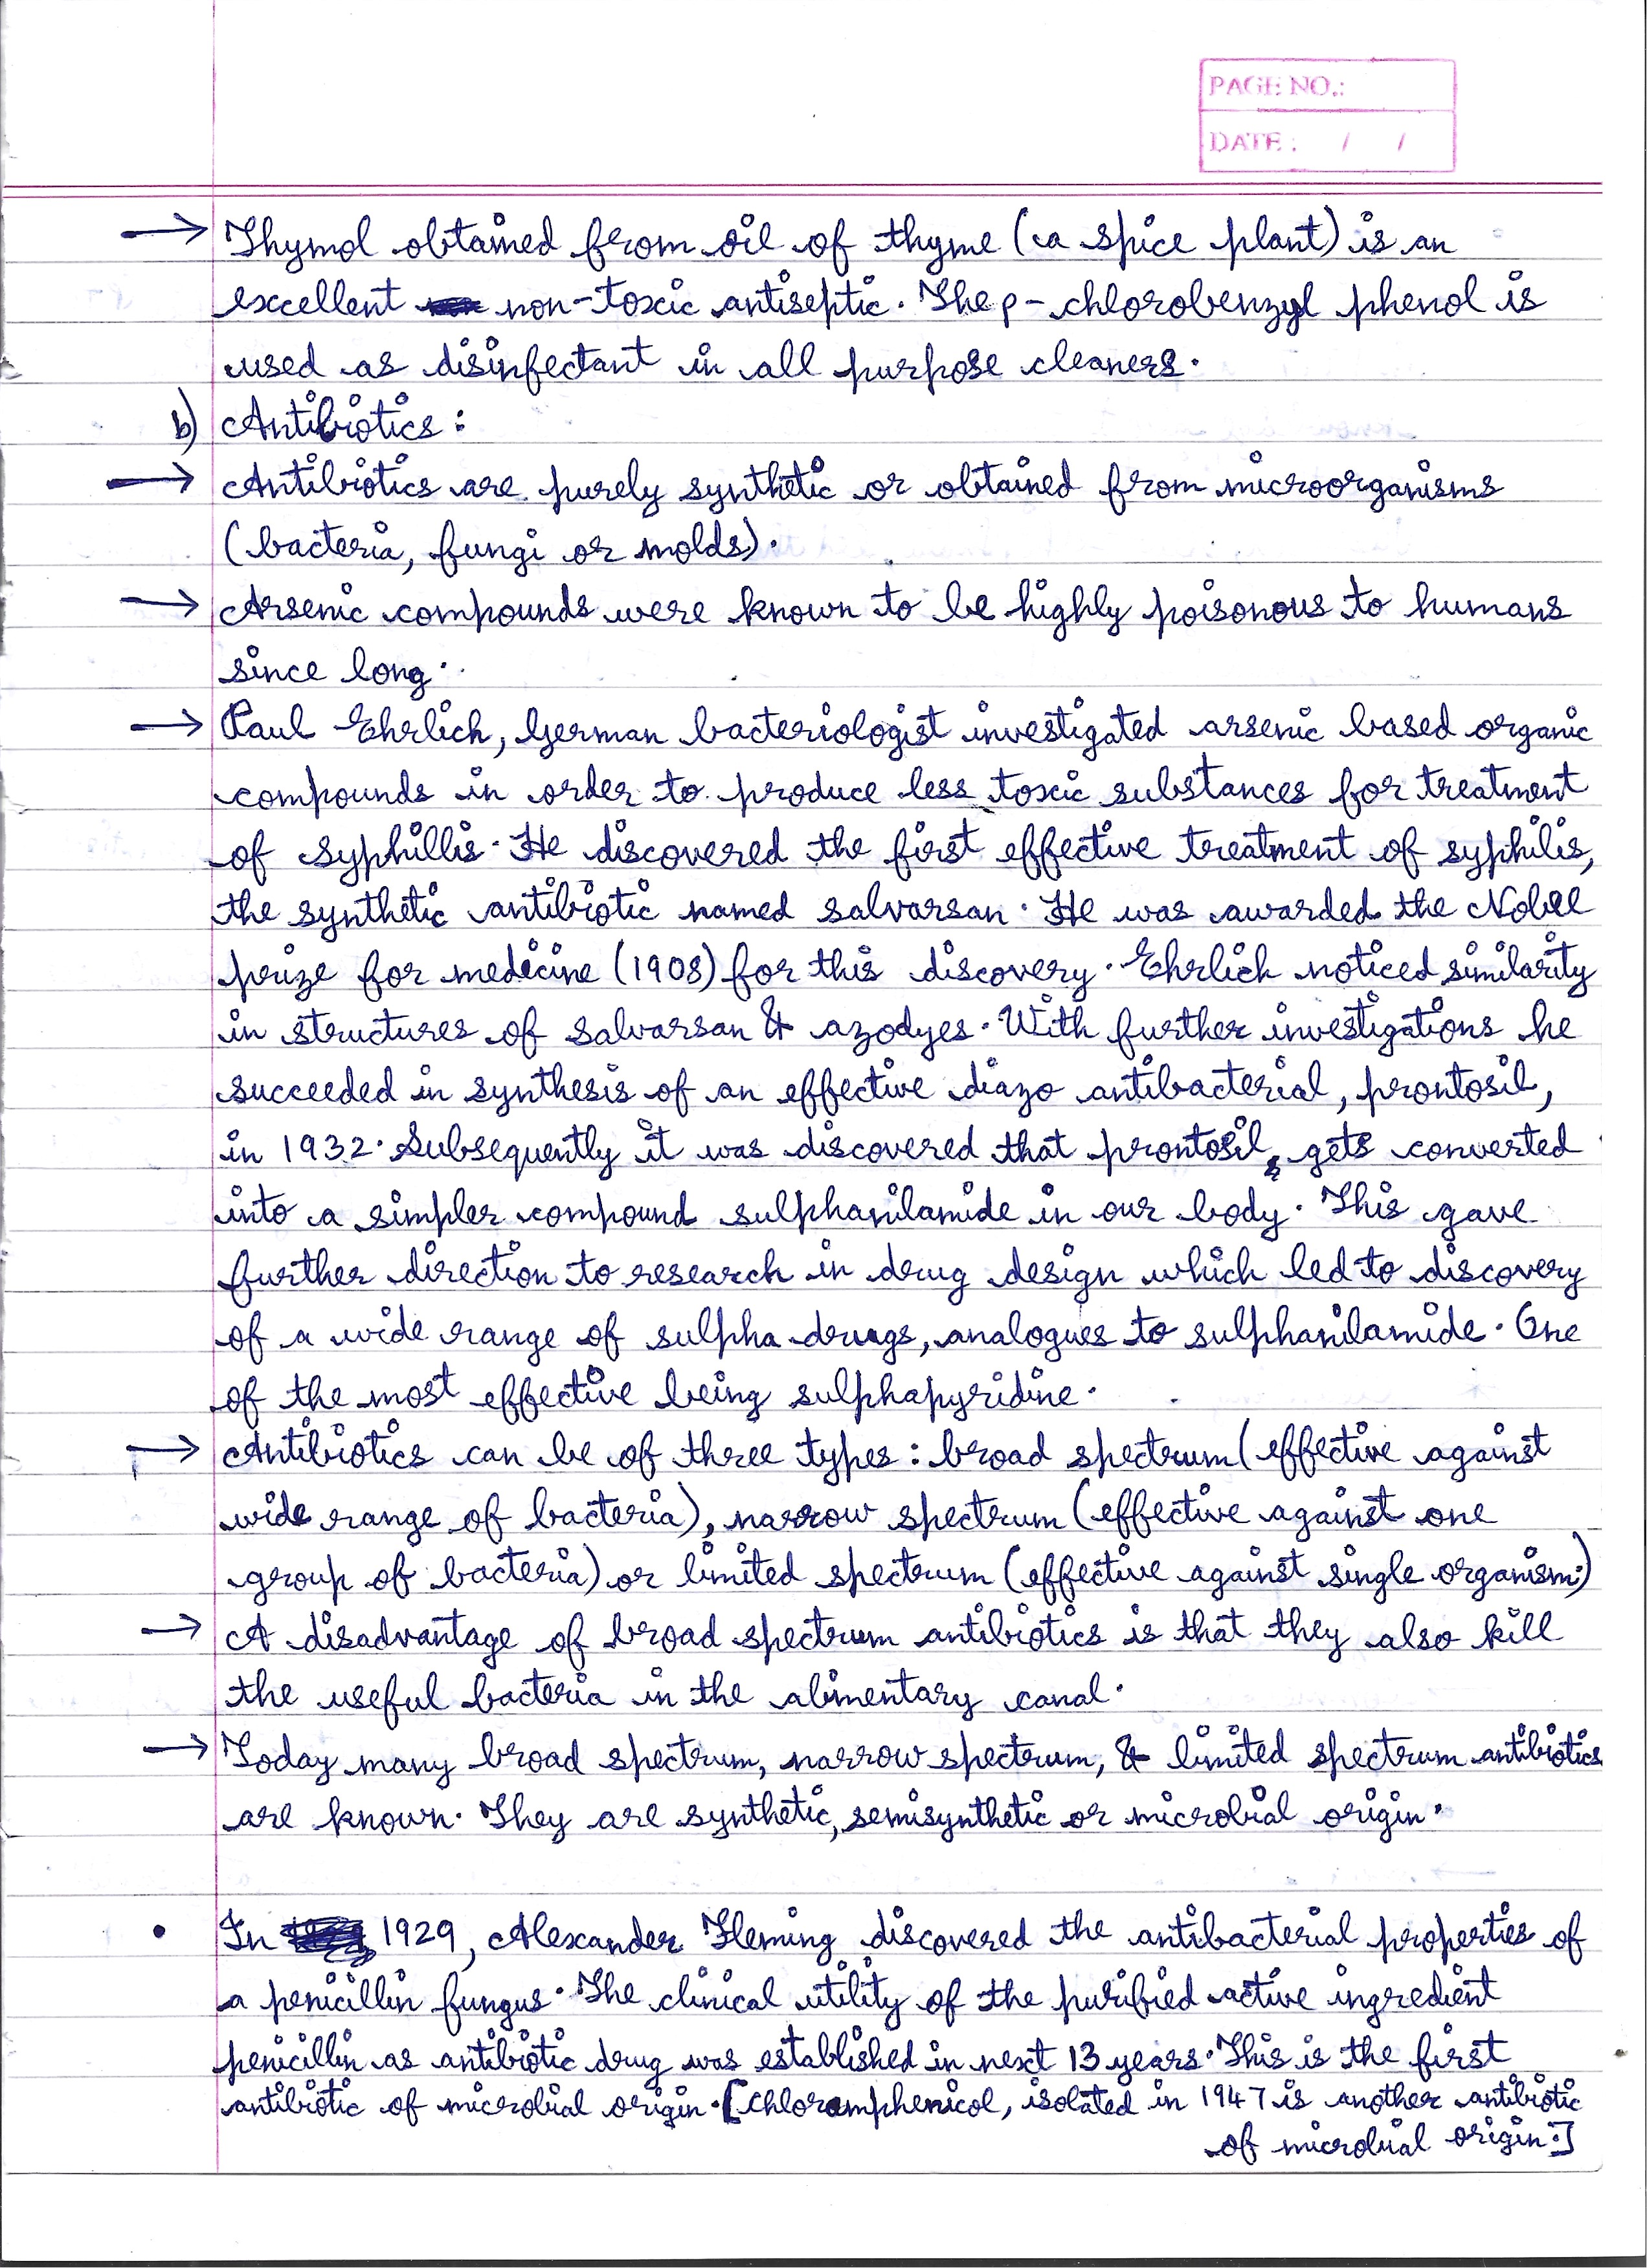 PAGE NO.:
DATE: / /
→ Thymol obtained from oil of thyme (a spice plant) is an
excellent non-toxic antiseptic. The p-chlorobenzyl phenol is
used as disinfectant in all purpose cleaners.
b) Antibiotics:
→ Antibiotics are purely synthetic or obtained from microorganisms
(bacteria, fungi or molds).
→ Arsenic compounds were known to be highly poisonous to humans
since long.
→ Paul Ehrlich, German bacteriologist investigated arsenic based organic
compounds in order to produce less toxic substances for treatment
of syphillis. He discovered the first effective treatment of syphilis,
the synthetic antibiotic named salvarsan. He was awarded the Nobel
prize for medicine (1908) for this discovery. Ehrlich noticed similarity
in structures of salvarsan & azodyes. With further investigations he
succeeded in synthesis of an effective diazo antibacterial, prontosil,
in 1932. Subsequently it was discovered that prontosil, gets converted
into a simpler compound sulphanilamide in our body. This gave
further direction to research in drug design which led to discovery
of a wide range of sulpha drugs, analogues to sulphanilamide. One
of the most effective being sulphapyridine.
→ Antibiotics can be of three types: broad spectrum (effective against
wide range of bacteria), narrow spectrum (effective against one
group of bacteria) or limited spectrum (effective against single organism.)
→ A disadvantage of broad spectrum antibiotics is that they also kill
the useful bacteria in the alimentary canal.
→ Today many broad spectrum, narrow spectrum, & limited spectrum antibiotics
are known. They are synthetic, semisynthetic or microbial origin.
• In 1929, Alexander Fleming discovered the antibacterial properties of
a penicillin fungus. The clinical utility of the purified active ingredient
penicillin as antibiotic drug was established in next 13 years. This is the first
antibiotic of microbial origin. [Chloramphenicol, isolated in 1947 is another antibiotic
of microbial origin.]